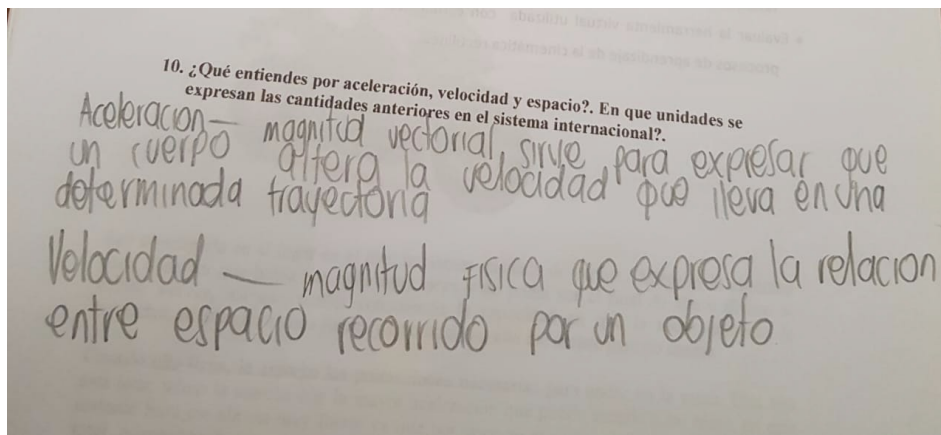 10. ¿Qué entiendes por aceleración, velocidad y espacio?. En que unidades se
expresan las cantidades anteriores en el sistema internacional?.
Aceleracion — magnitud vectorial, sirve para expresar que
un cuerpo altera la velocidad que lleva en una
determinada trayectoria
Velocidad — magnitud FISICA que expresa la relacion
entre espacio recorrido por un objeto